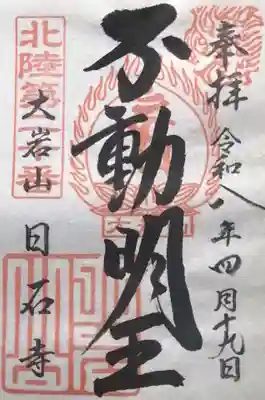 奉拝
令和八年四月十九日
不動明王
大岩山
日石寺